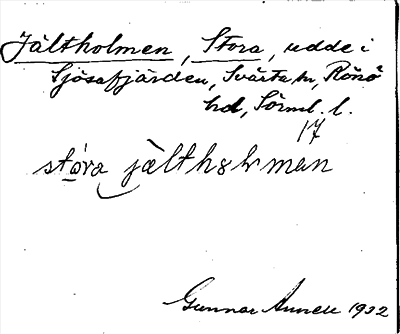 Jältholmen, Stora, udde i
Sjösafjärden, Svärta sn, Rönö
hd, Sörml. l.
17
stóra jàlthɷlmän
Gunnar Annell 1932